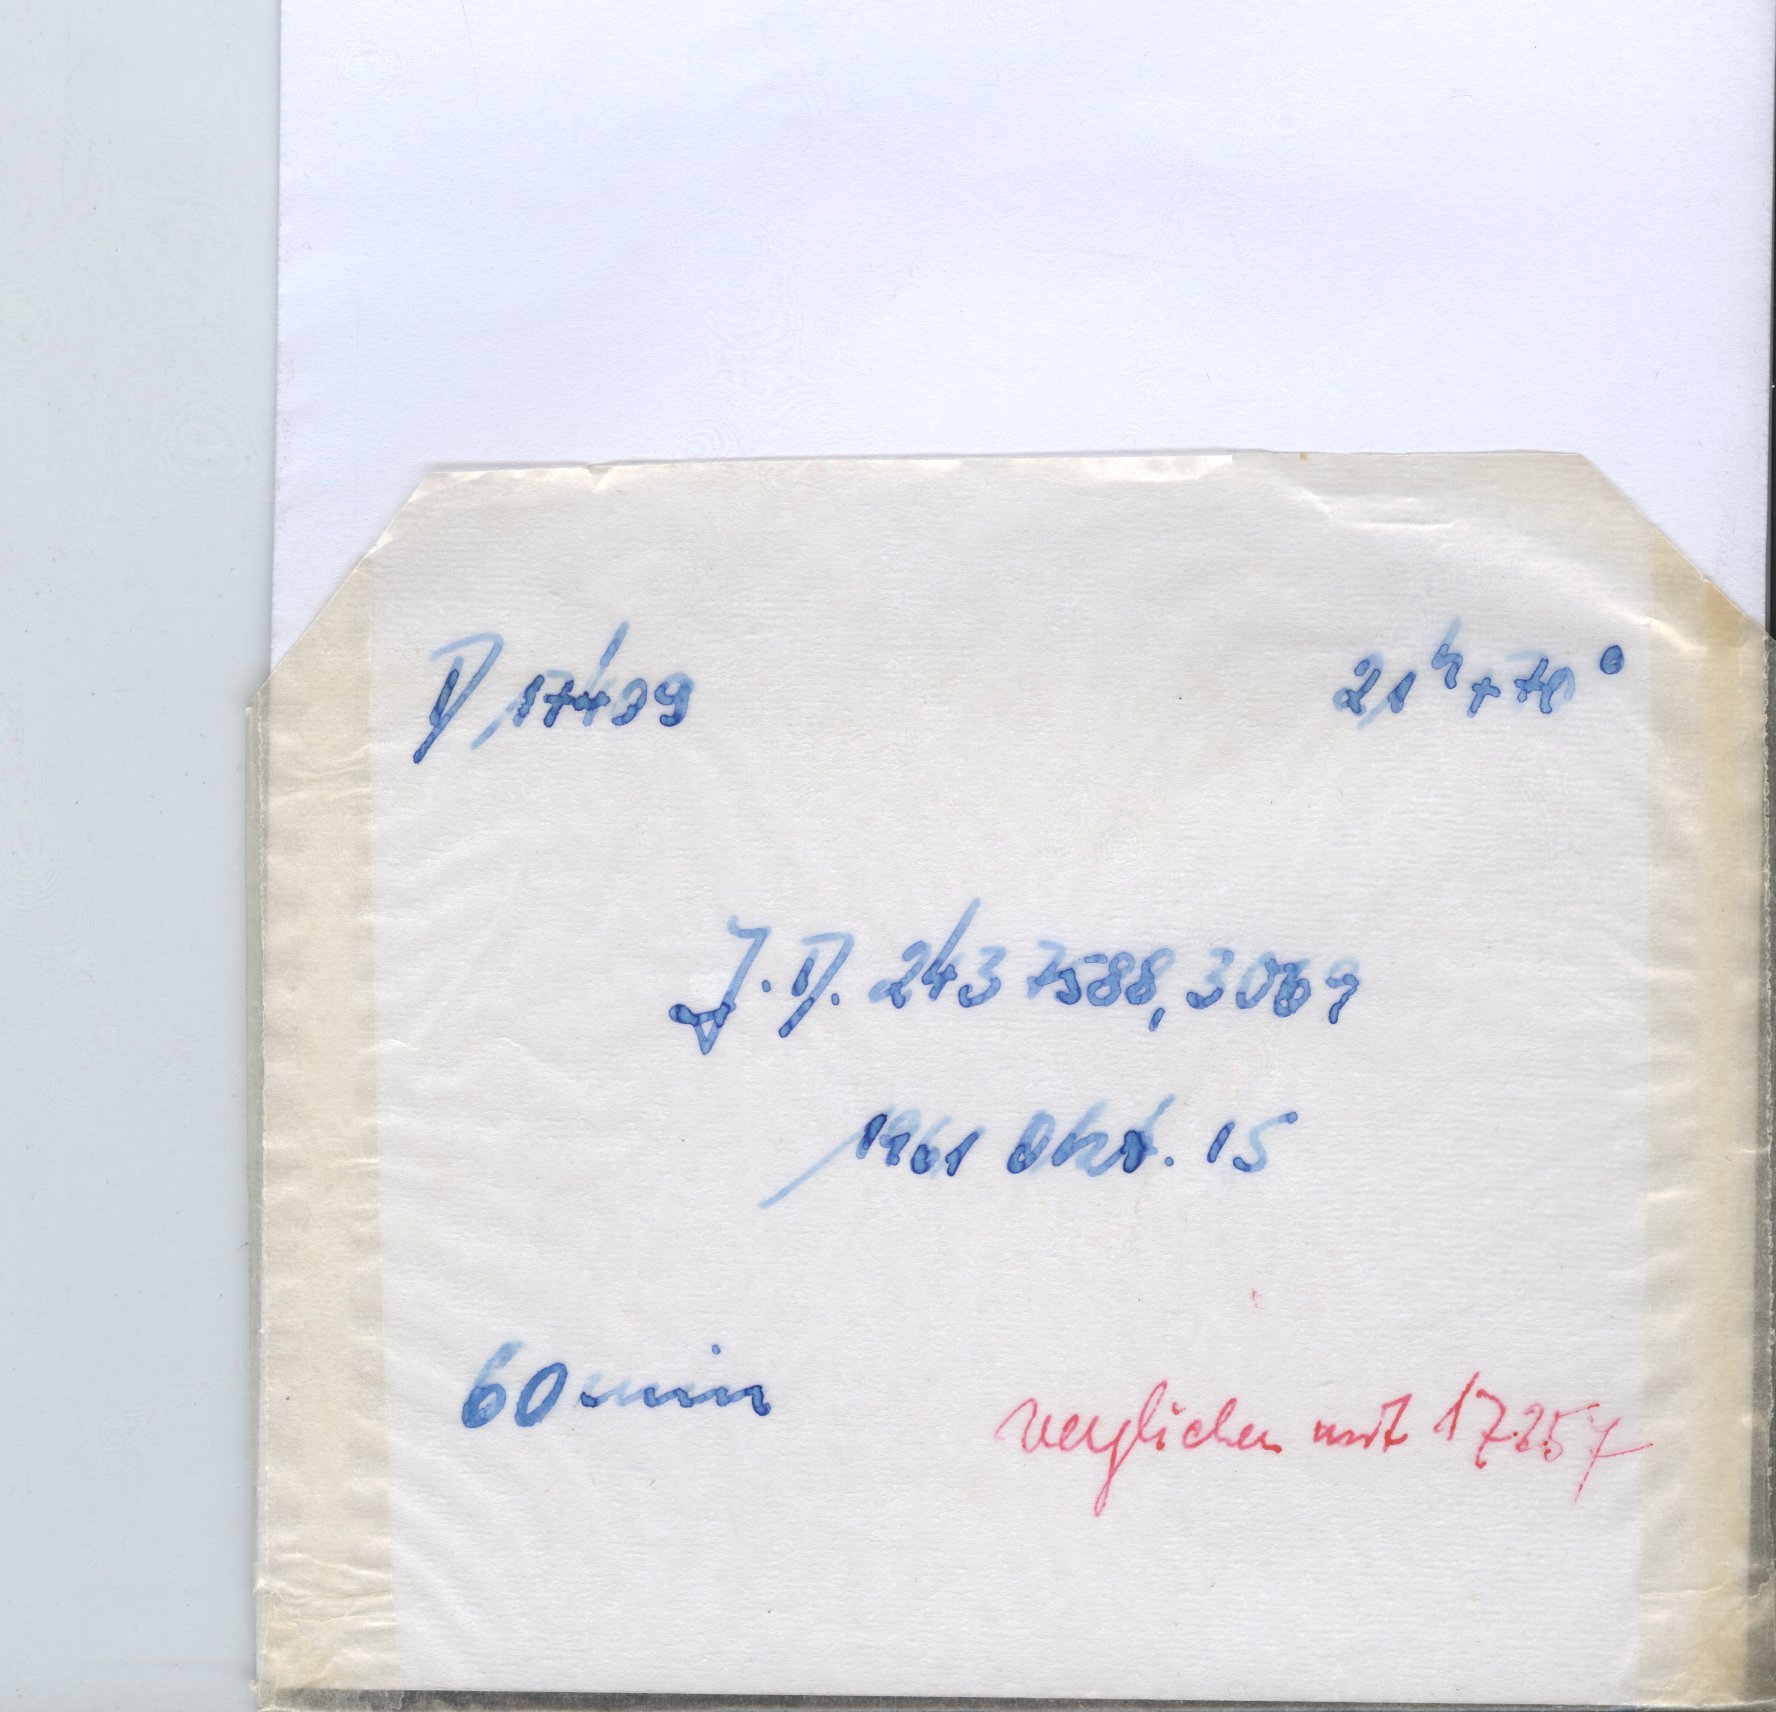 D 17439
21ʰ +70°
J.D. 243 7588,3069
1961 Okt. 15
60 min
verglichen mit 17257